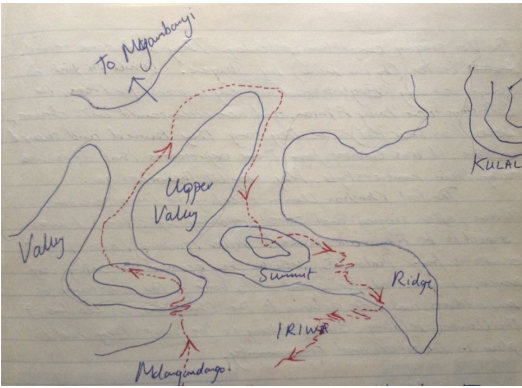 To Mtgambanyi
KULAL
Upper
Valley
Valley
Summit
Ridge
IRIWA
Mdangandango.